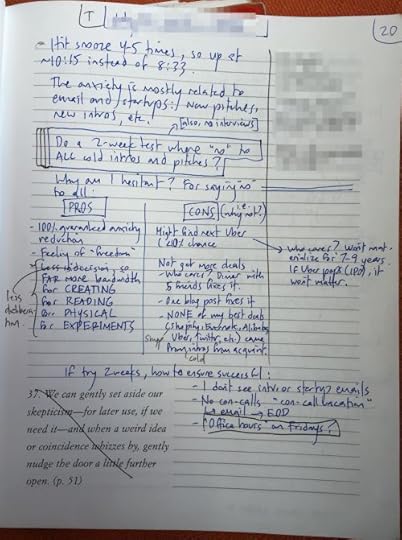 T
20
- Hit snooze 4-5 times, so up at
~10:15 instead of 8:33.
The anxiety is mostly related to
email and startups: new pitches,
new intros, etc.
[also, no interviews]
Do a 2-week test where "no" to
ALL cold intros and pitches?
Why am I hesitant? For saying "no"
to all:
PROS
- 100% guaranteed anxiety
reduction
- Feeling of "freedom"
- Less indecision, so
less
deliberation
FAR more bandwidth
for CREATING
for READING
for PHYSICAL
for EXPERIMENTS
CONS (i.e. why not?)
Might find next Uber
(<10% chance
- Who cares? Won't mat-
erialize for 7-9 years.
If Uber pops (IPO), it
won't matter.
Not get more deals
- Who cares? Dinner with
5 friends fixes it.
- One blog post fixes it
- NONE of my best deals
(Shopify, Evernote, Alibaba,
Uber, Twitter, etc.) came
from intros from acquaint
cold
If try 2 weeks, how to ensure successful:
- I don't see intro or startup emails
- No con-calls "con-call vacation"
↳ email → EOD
- "Office hours" on Fridays?
37. We can gently set aside our
skepticism—for later use, if we
need it—and when a weird idea
or coincidence whizzes by, gently
nudge the door a little further
open. (p. 51)